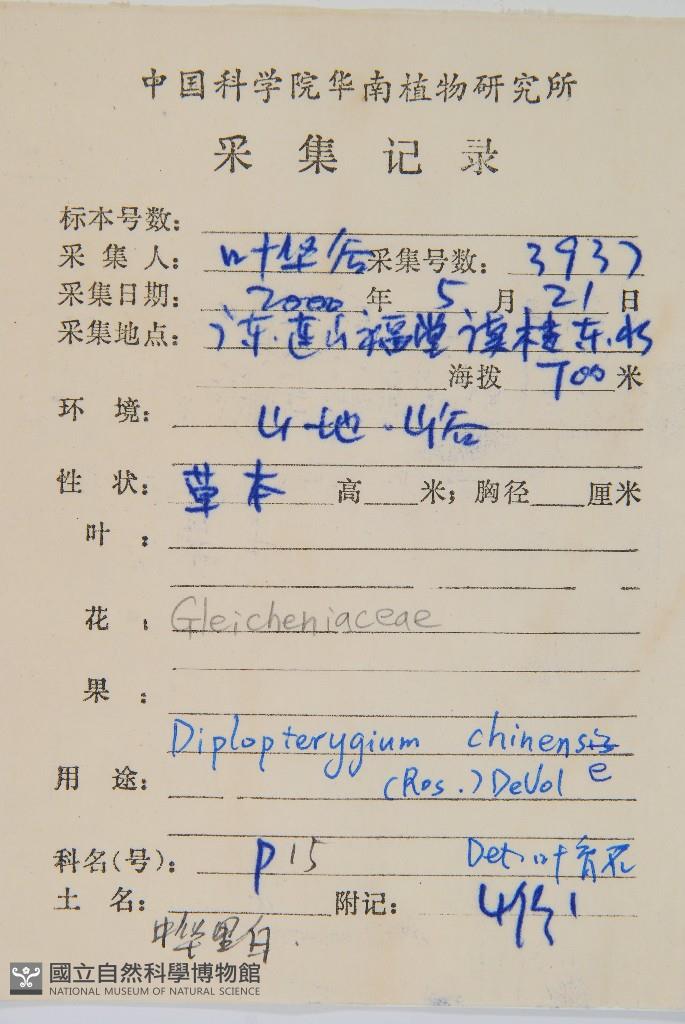 中国科学院华南植物研究所
采集记录
标本号数：
采集人：叶华谷 采集号数：3937
采集日期：2000年5月21日
采集地点：广东.连山福堂
海拨700米
环境：山地.山谷
性状：草本 高 米；胸径 厘米
叶：
花：Gleicheniaceae
果：
Diplopterygium chinense
用途：(Ros.) DeVol
科名(号)：P15 Det: 叶育石
土名：附记：4份
中华里白.
國立自然科學博物館
NATIONAL MUSEUM OF NATURAL SCIENCE